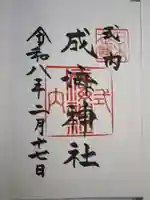 式内
成海神社
令和八年二月十七日